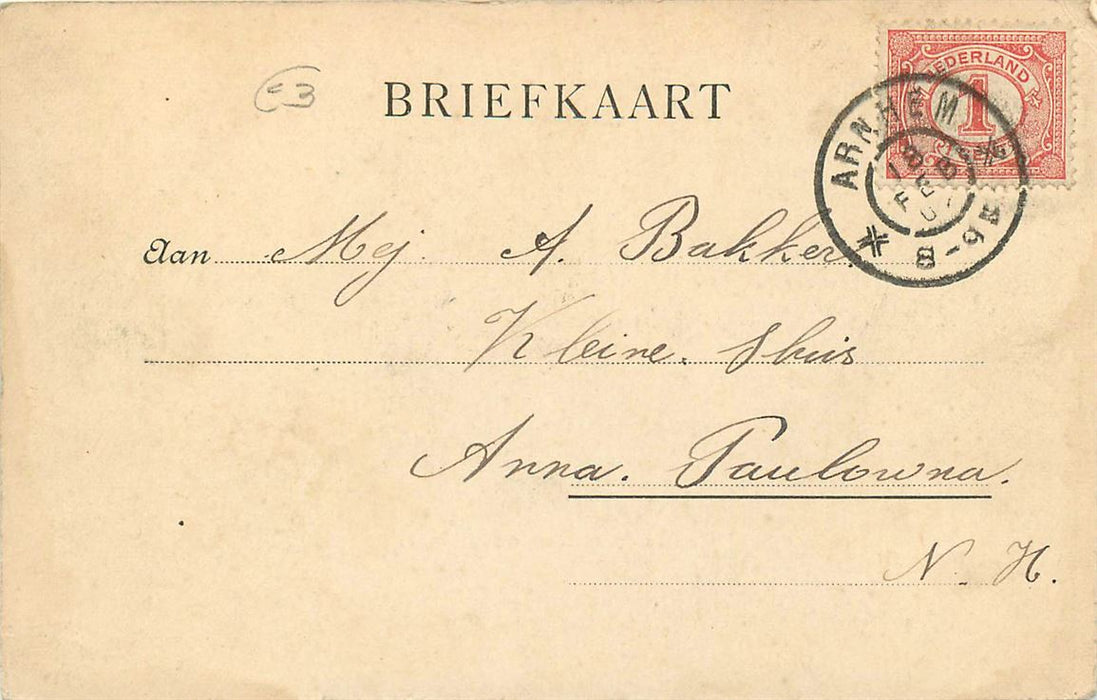 -3
BRIEFKAART
NEDERLAND
1
ARNHEM
8-9
FEB
Aan Mej A. Bakker.
Kleine. Sluis
Anna. Paulowna.
N. H.